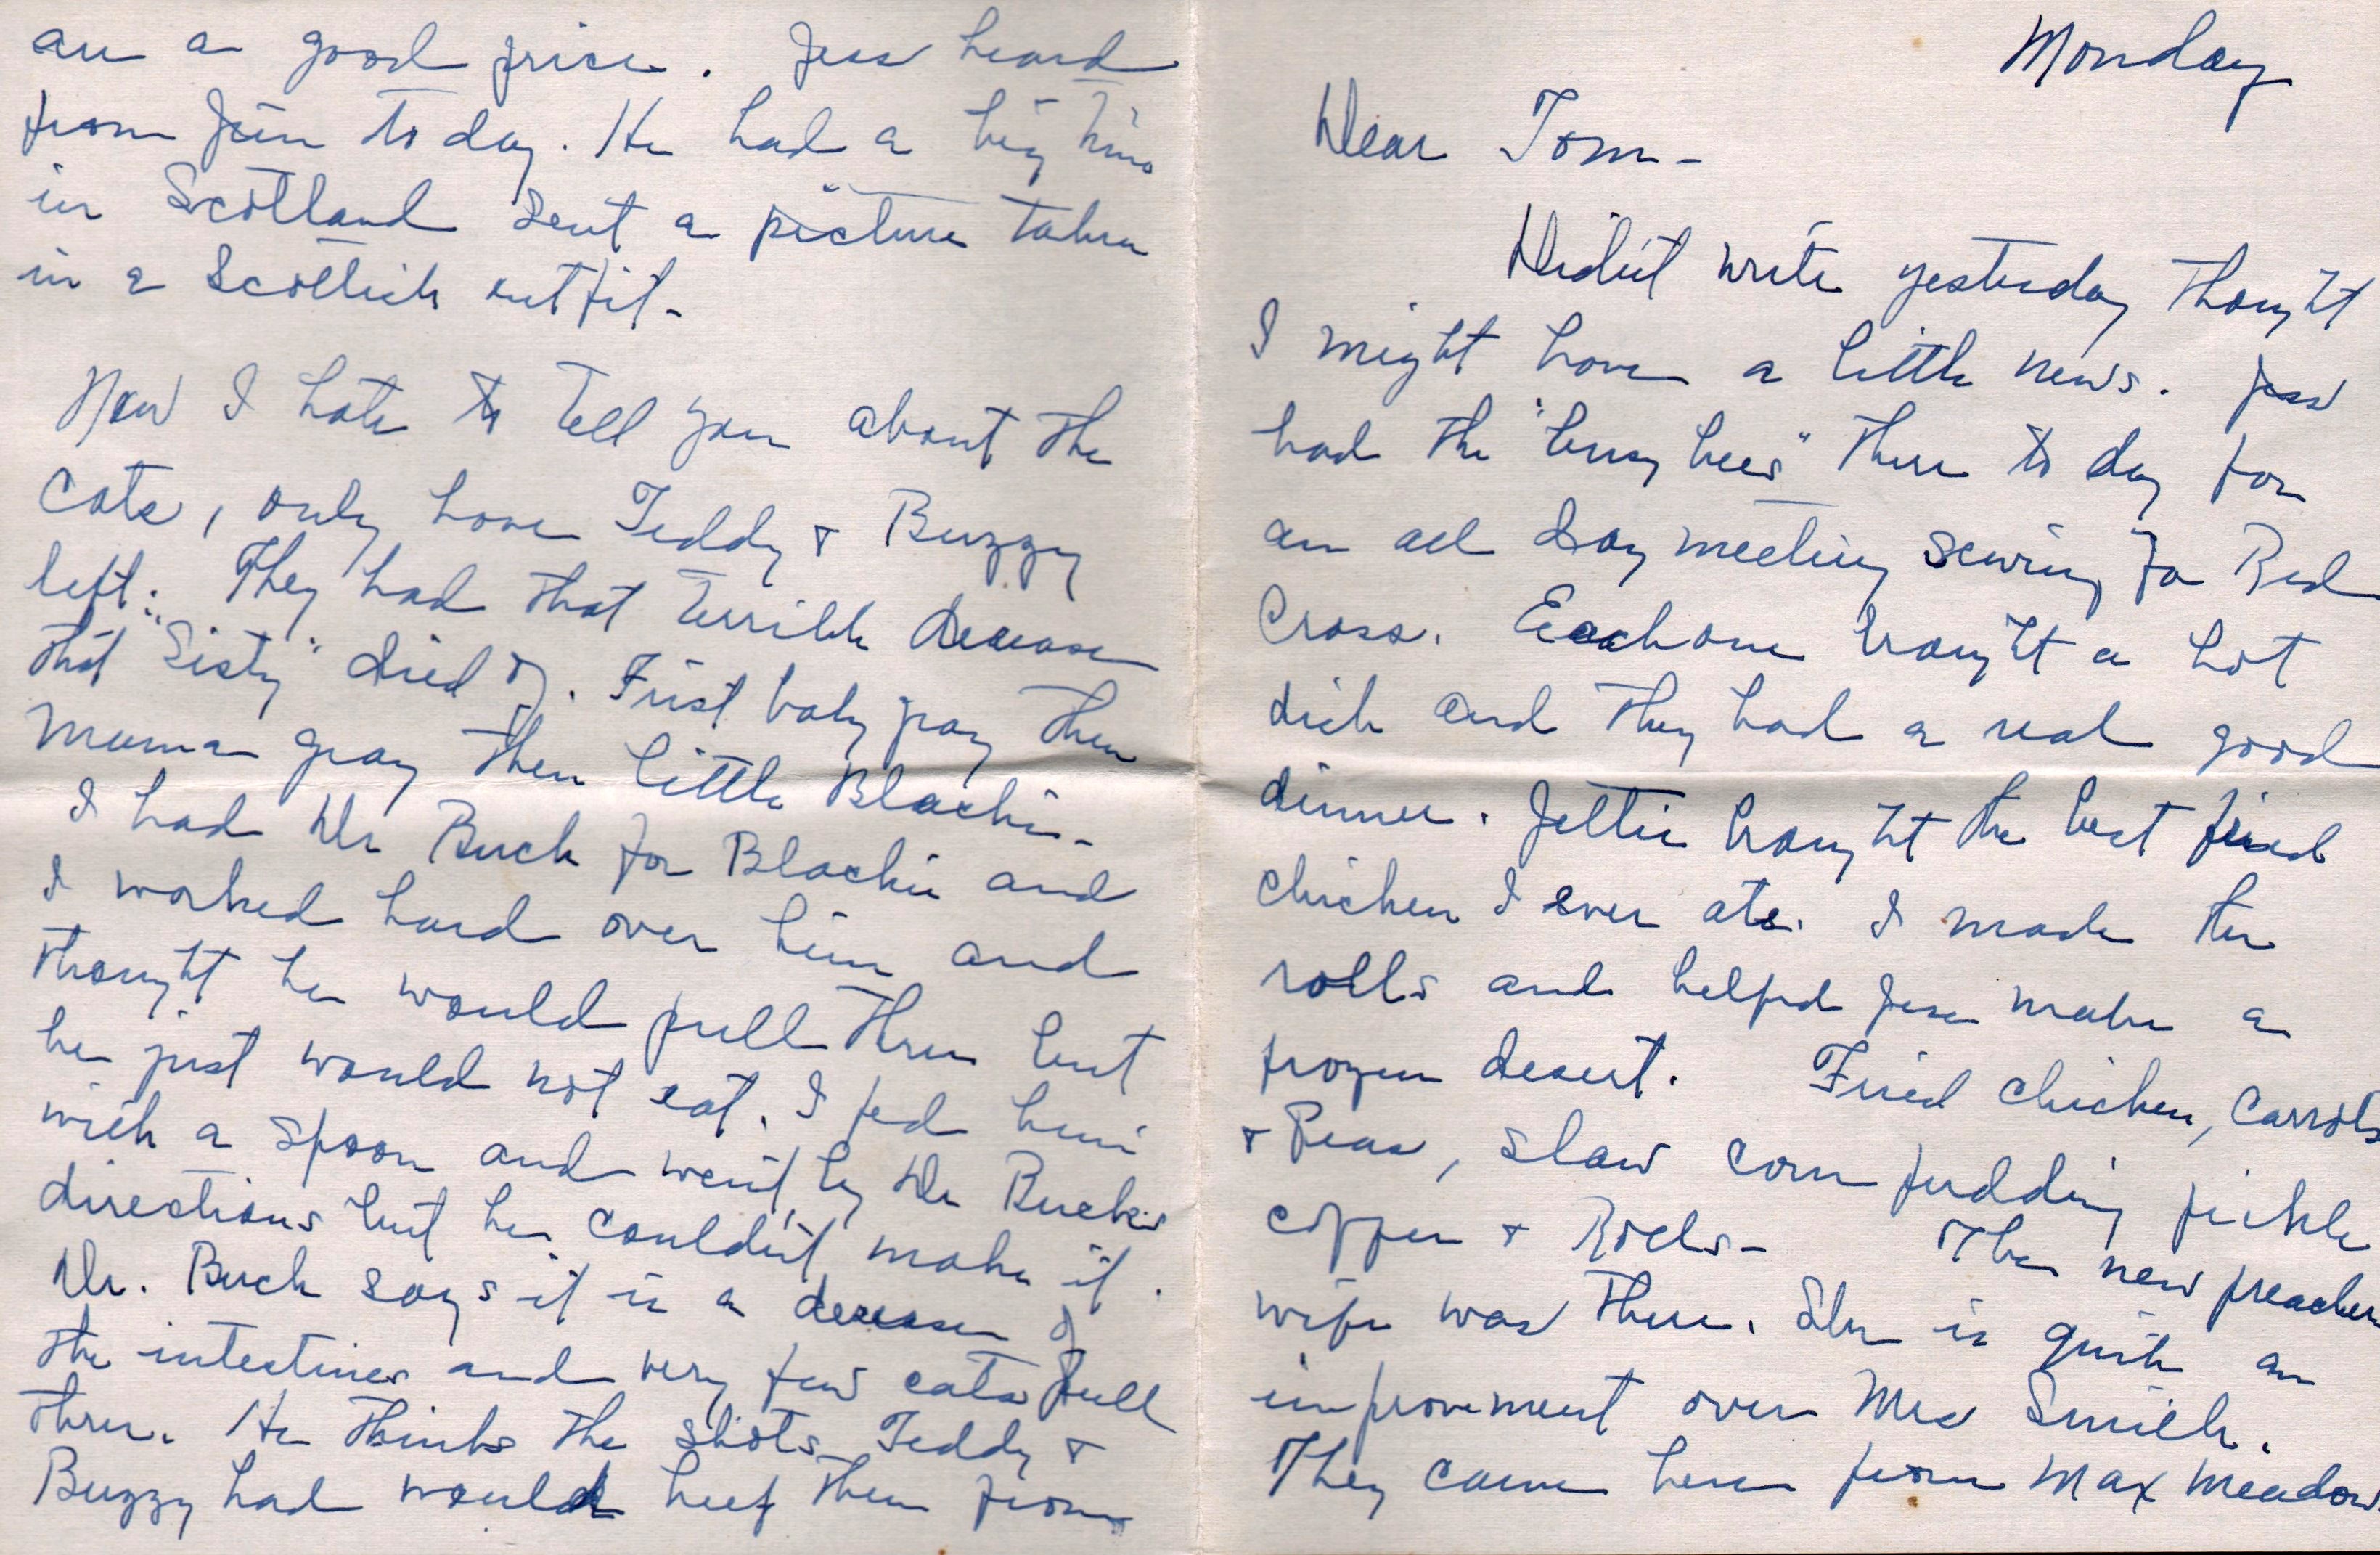 are a good price. Jess heard
from Jim to day. He had a big time
in Scotland sent a picture taken
in a Scottish outfit-
Now I hate to tell you about the
cats, only have Teddy + Buzzy
left. They had that terrible desease
that "Sisty" died of. First baby gray then
Mama gray then little Blackie-
I had Dr Buck for Blackie and
I worked hard over him and
thought he would pull thru but
he just would not eat. I fed him
with a spoon and went by Dr Bucks
directions but he couldn't make it.
Dr. Buck says it is a desease of
the intestines and very few cats pull
thru. He thinks the shots Teddy +
Buzzy had would keep them from
Monday
Dear Tom-
Didn't write yesterday thought
I might have a little news. Jess
had the "busy bees" there to day for
an all day meeting sewing for Red
Cross. Each one brought a hot
dish and they had a real good
dinner. Jettie brought the best fried
chicken I ever ate. I made the
rolls and helped Jess make a
frozen desert. Fried chicken, carrots
+ Peas, slaw corn pudding pickle
coffee + Rolls- The new preachers
wife was there. She is quite an
improvement over Mrs Smith.
They came here from Max Meadows